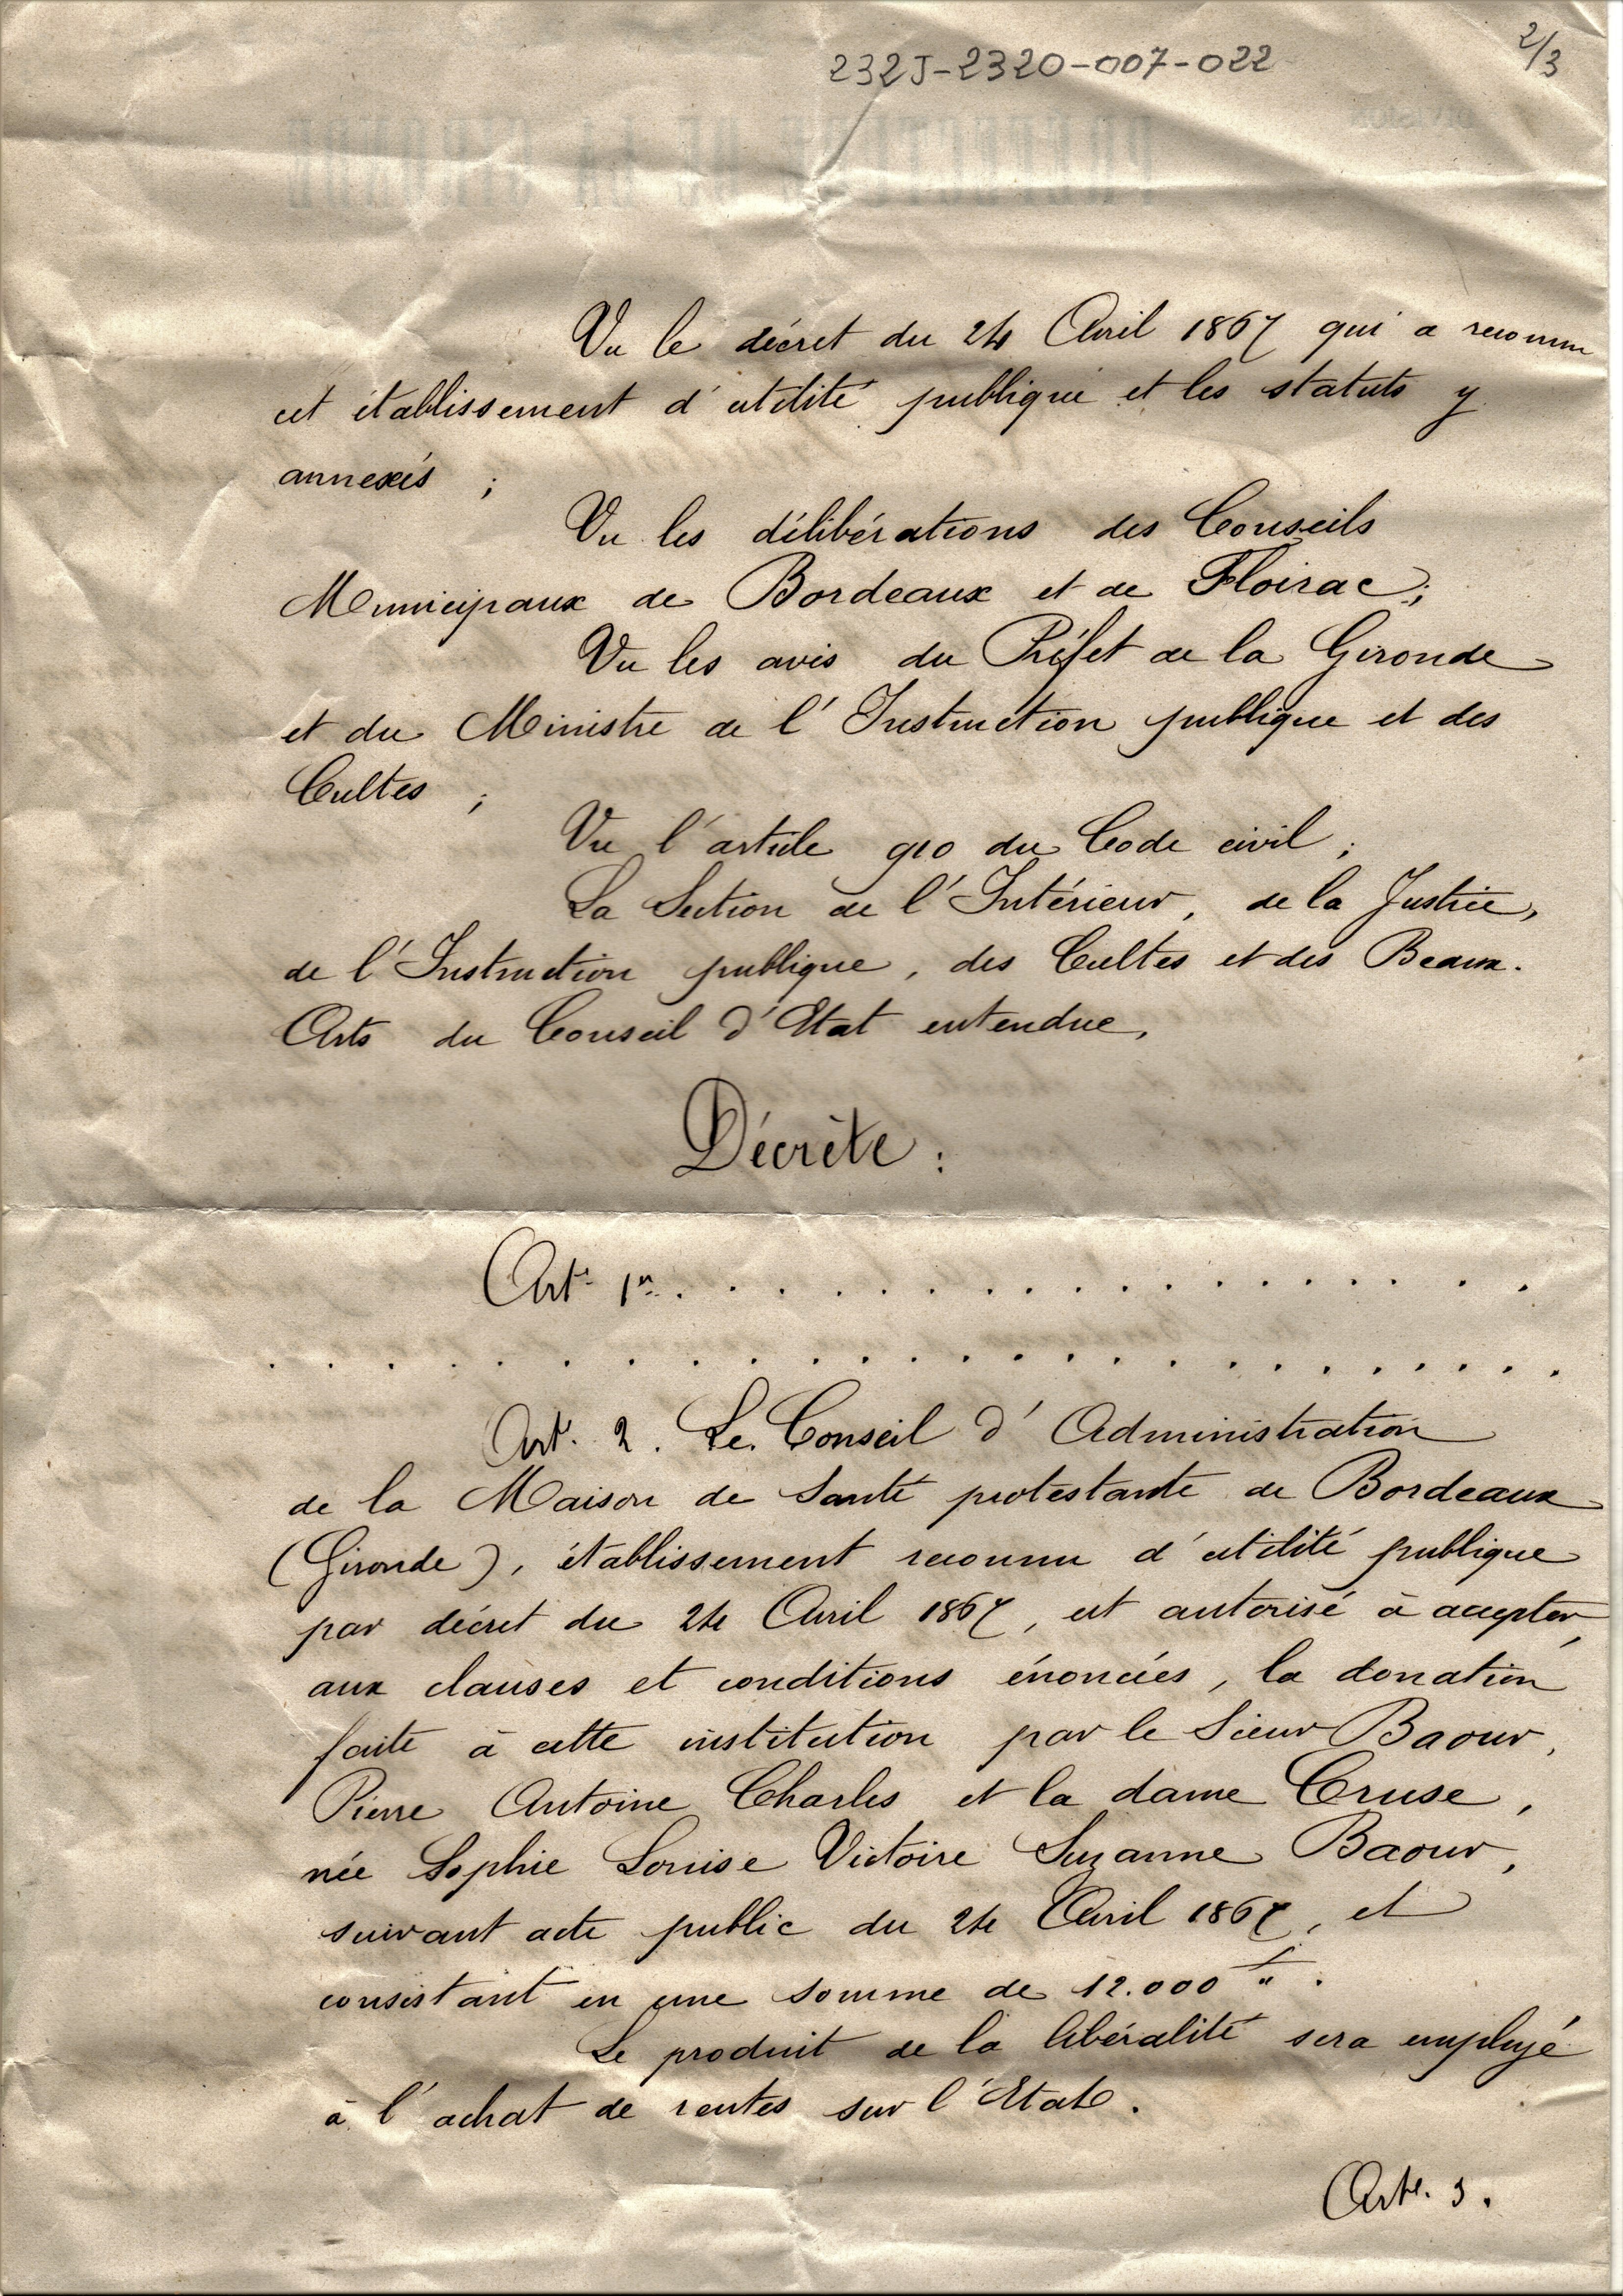 232J-2320-007-022
2/3
Vu le décret du 24 Avril 1867 qui a reconnu
cet établissement d'utilité publique et les statuts y
annexés ;
Vu les délibérations des Conseils
Municipaux de Bordeaux et de Floirac ;
Vu les avis du Préfet de la Gironde
et du Ministre de l'Instruction publique et des
Cultes ;
Vu l'article 910 du Code civil ;
La Section de l'Intérieur, de la Justice,
de l'Instruction publique, des Cultes et des Beaux-
Arts du Conseil d'Etat entendue,
Décrète :
Art. 1er. . . . . . . . . . . . . . . . . . . .
. . . . . . . . . . . . . . . . . . . . . . . .
Art. 2. Le Conseil d'Administration
de la Maison de Santé protestante de Bordeaux
(Gironde), établissement reconnu d'utilité publique
par décret du 24 Avril 1867, est autorisé à accepter,
aux clauses et conditions énoncées, la donation
faite à cette institution par le Sieur Baour,
Pierre Antoine Charles et la dame Cruse,
née Sophie Louise Victoire Suzanne Baour,
suivant acte public du 24 Avril 1867, et
consistant en une somme de 12.000 f ".
Le produit de la libéralité sera employé
à l'achat de rentes sur l'Etat.
Arte. 3.